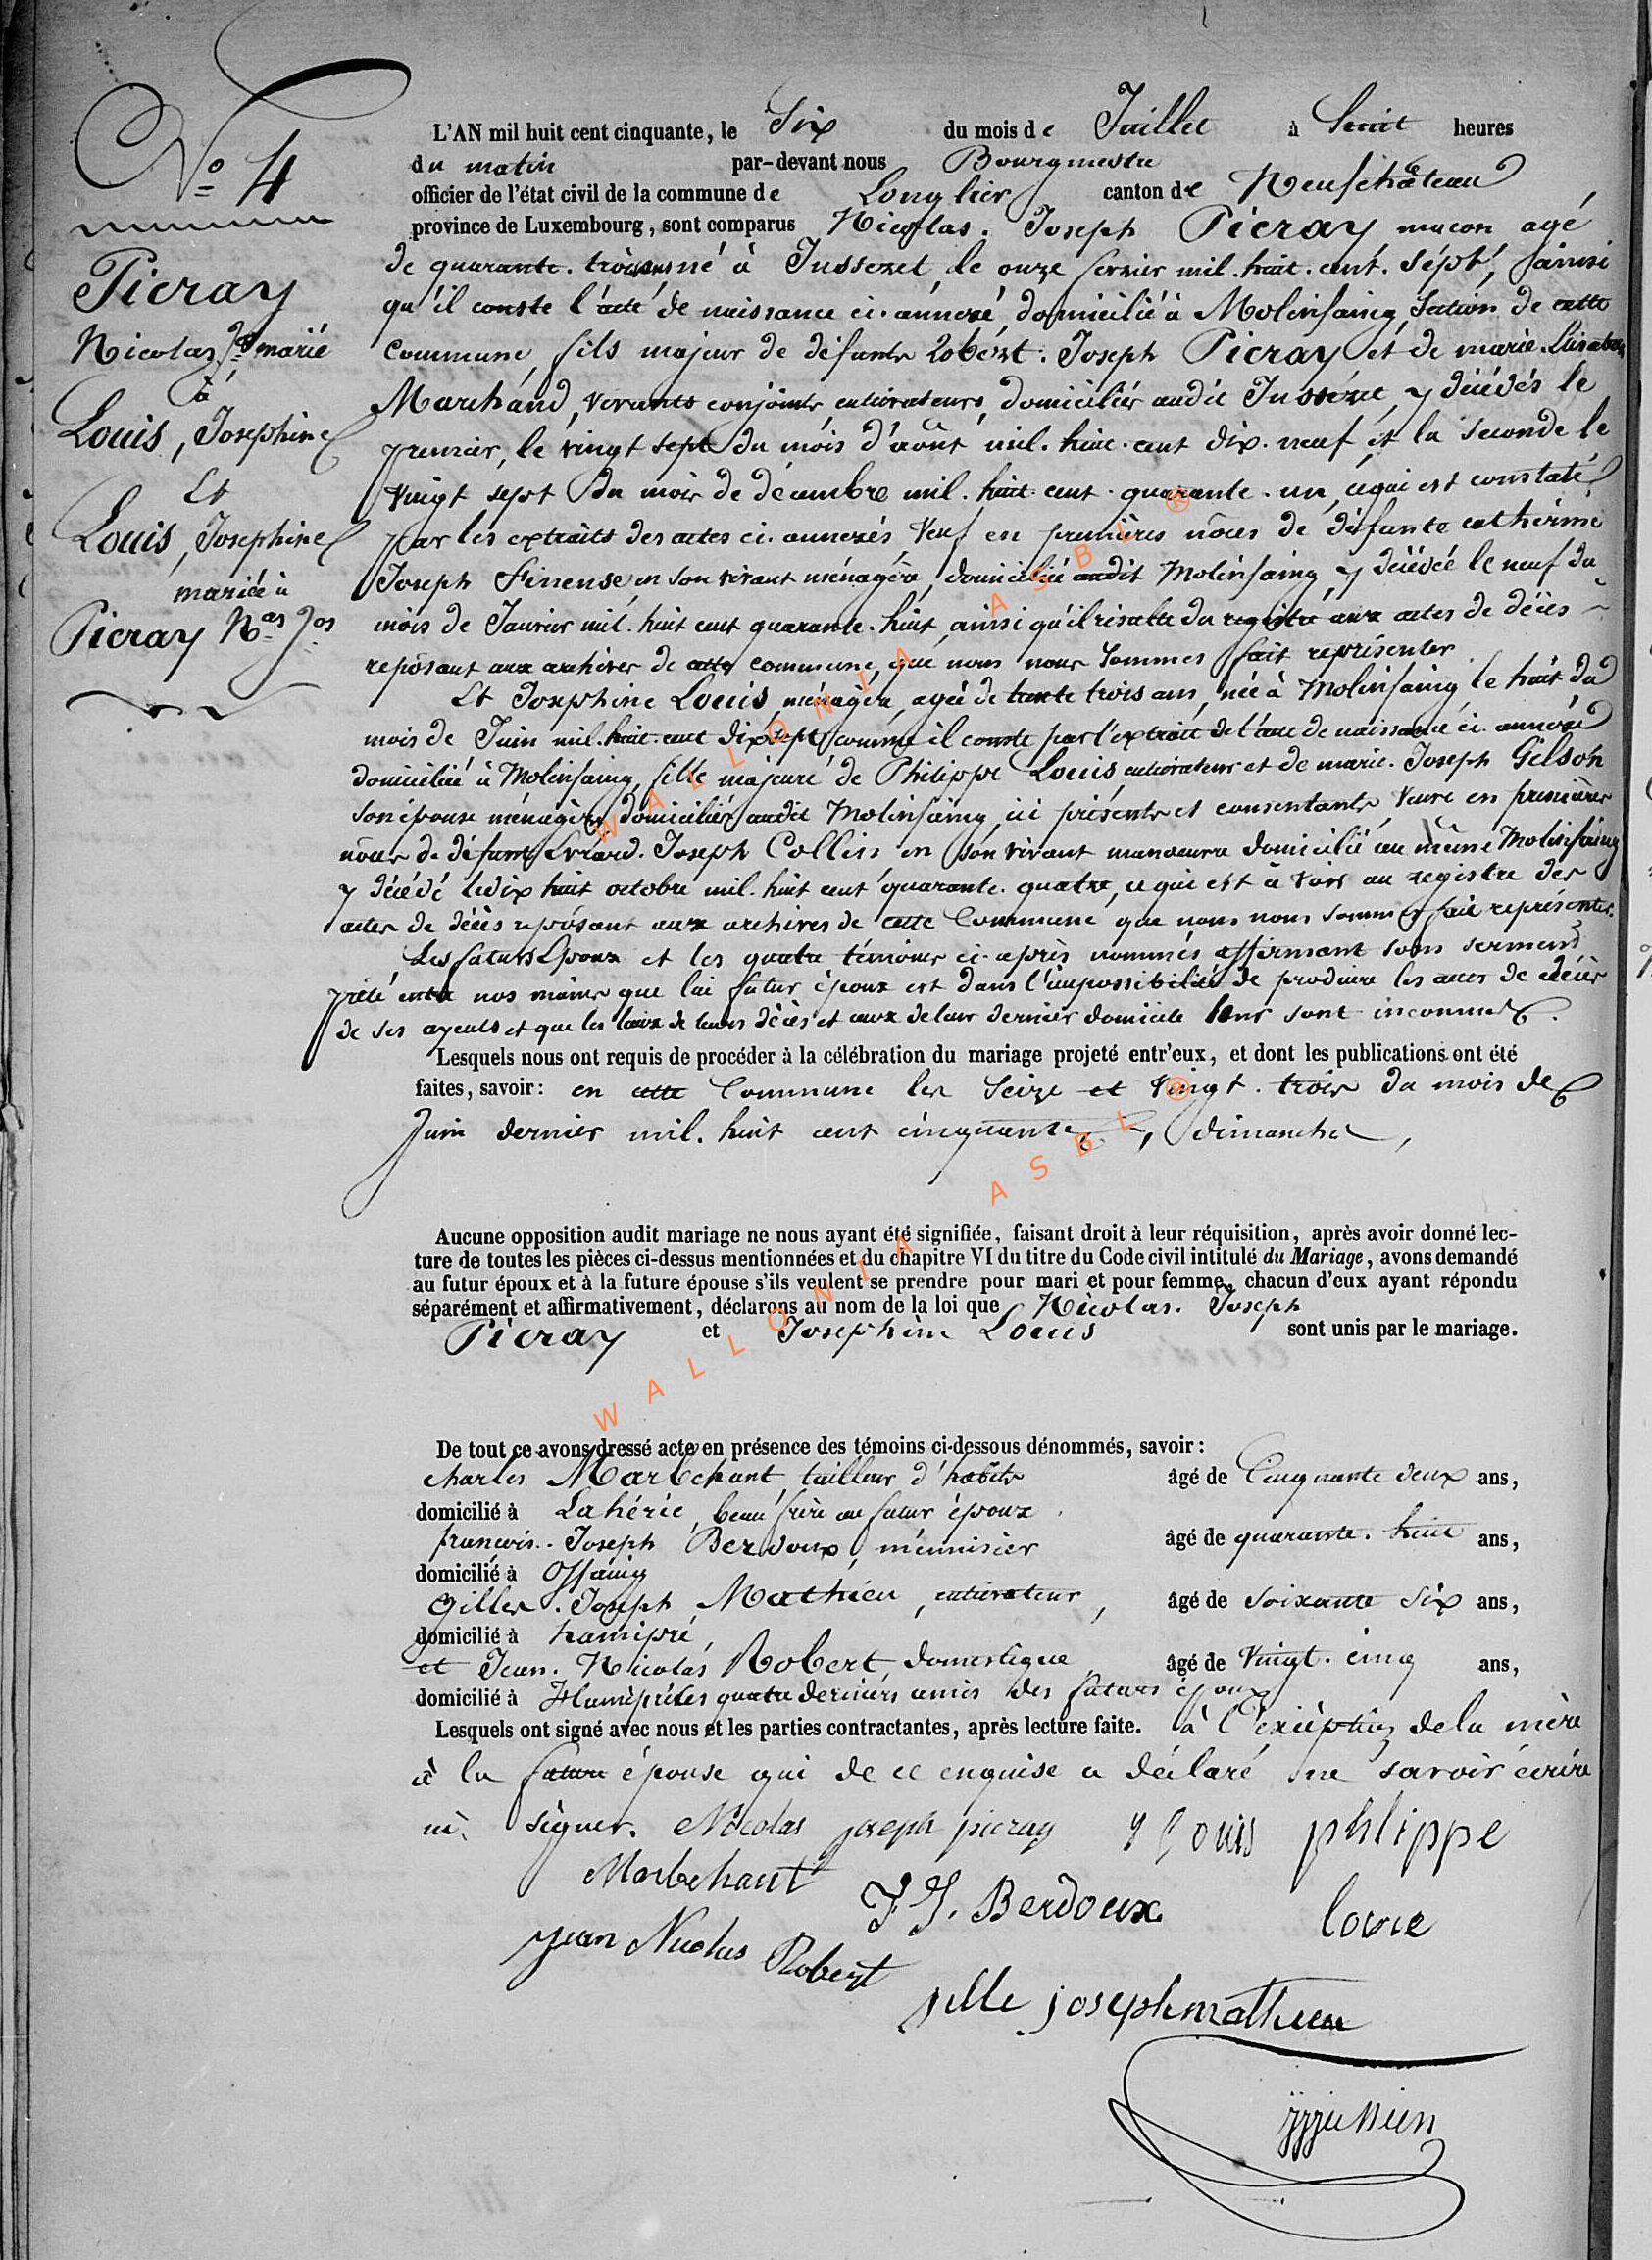 N° 4
Pieray
Nicolas Jos marié
à
Louis, Josephine
Et
Louis, Josephine
mariée à
Pieray Nas Jos
L'AN mil huit cent cinquante, le Six du mois de Juillet à huit heures
du matin par-devant nous Bourgmestre
officier de l'état civil de la commune de Longlier canton de Neufchâteau
province de Luxembourg, sont comparus Nicolas. Joseph Pieray maçon agé
de quarante. trois ans né à Jusseret le onze fevrier mil. huit. cent. sept, ainsi
qu'il conste l'acte de naissance ci. annexé domicilié à Molinfaing, Section de cette
Commune, fils majeur de défunts Robert. Joseph Pieray et de marie. Elisabeth
Marchand, vivants conjoints cultivateurs, domiciliés audit Jusseret, y décédés le
premier, le vingt sept du mois d'août mil. huit. cent dix. neuf et la seconde le
vingt sept du mois de décembre mil. huit cent. quarante. un, ce qui est constaté
par les extraits des actes ci. annexés Veuf en premières nôces de défunte catherine
Joseph Finense en son vivant ménagère, domiciliée audit Molinfaing, y décédée le neuf du
mois de Janvier mil. huit cent quarante. huit, ainsi qu'il résulte du registre aux actes de décès
reposant aux archives de cette commune, que nous nous sommes fait représenter.
Et Josephine Louis, ménagère, agée de trente trois ans, née à Molinfaing, le huit du
mois de Juin mil. huit. cent dix sept comme il conste par l'extrait de l'acte de naissance ci. annexé
domiciliée à Molinfaing, fille majeure de Philippe Louis, cultivateur et de marie. Joseph Gilson
son épouse ménagère domiciliés audit Molinfaing, ici présents et consentants, Veuve en premières
nôces de défunt Evrard. Joseph Collin en son vivant manoeuvre domicilié au même Molinfaing
y décédé le dix huit octobre mil. huit cent quarante. quatre, ce qui est à voir au registre des
actes de décès reposant aux archives de cette Commune que nous nous sommes fait représenter.
Les futurs Epoux et les quatre témoins ci. après nommés affirmant sous serment
prêté entre nos mains que lui futur époux est dans l'impossibilité de produire les actes de décès
de ses ayeuls et que les lieux de leurs décès et ceux de leur dernier domicile leur sont inconnus.
Lesquels nous ont requis de procéder à la célébration du mariage projeté entr'eux, et dont les publications ont été
faites, savoir: en cette Commune les Seize et Vingt. trois du mois de
Juin dernier mil. huit cent cinquante, dimanches,
Aucune opposition audit mariage ne nous ayant été signifiée, faisant droit à leur réquisition, après avoir donné lec-
ture de toutes les pièces ci-dessus mentionnées et du chapitre VI du titre du Code civil intitulé du Mariage, avons demandé
au futur époux et à la future épouse s'ils veulent se prendre pour mari et pour femme, chacun d'eux ayant répondu
séparément et affirmativement, déclarons au nom de la loi que Nicolas. Joseph
Pieray et Josephine Louis sont unis par le mariage.
De tout ce avons dressé acte en présence des témoins ci-dessous dénommés, savoir:
charles Marbehant, tailleur d'habits âgé de Cinquante deux ans,
domicilié à Lahérie, beau frère au futur époux
françois. Joseph Berdoux, ménuisier âgé de quarante. huit ans,
domicilié à Offaing
Gilles. Joseph Mathieu, cultivateur, âgé de Soixante Six ans,
domicilié à hamipré,
et Jean. Nicolas Robert, domestique âgé de Vingt. cinq ans,
domicilié à Hamipré les quatre derniers amis des futurs époux
Lesquels ont signé avec nous et les parties contractantes, après lecture faite. à l'exception de la mère
à la future épouse qui de ce enquise a déclaré ne savoir écrire
ni signer. Nicolas joseph pieray Louis phlippe
Marbehant F J. Berdoux lovie
jean Nicolas Robert
jille joseph mathieu
WALLONIA ASBL ®
WALLONIA ASBL ®